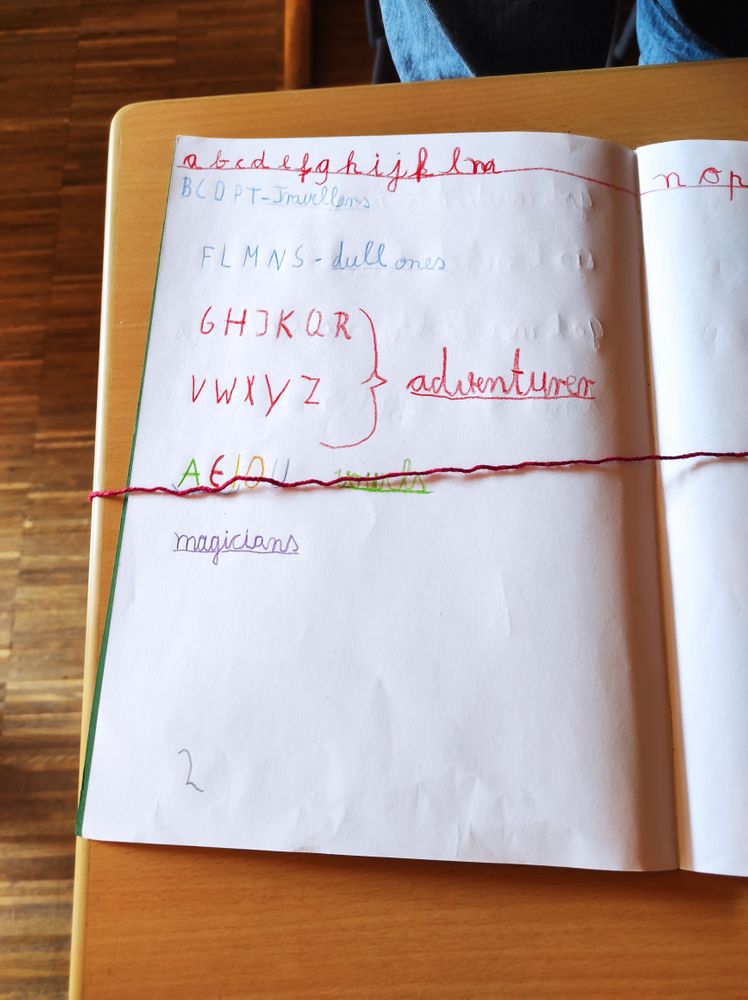 a b c d e f g h i j k l m
n o p
B C D P T - Travellers
F L M N S - dull ones
G H J K Q R
V W X Y Z
adventurer
A E I O U vowels
magicians
2